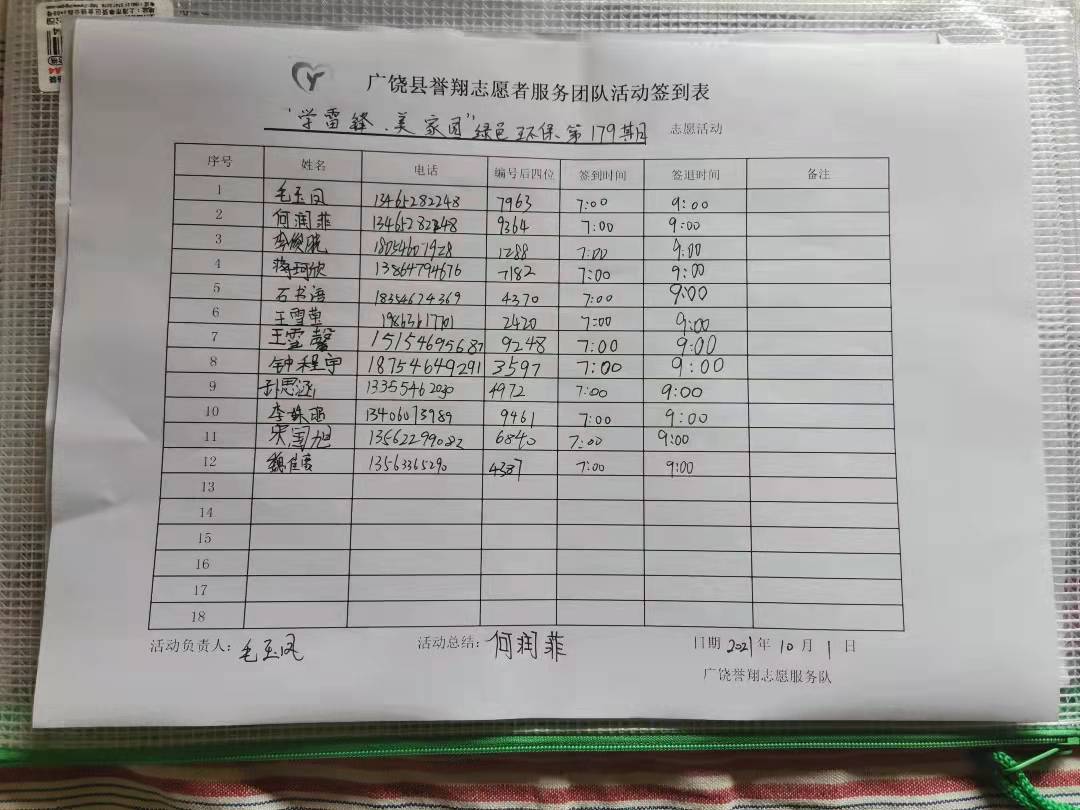 广饶县誉翔志愿者服务团队活动签到表
"学雷锋、美家园"绿色环保第179期 志愿活动
序号 姓名 电话 编号后四位 签到时间 签退时间 备注
1 毛玉凤 13465282248 7963 7:00 9:00
2 何润菲 13465282248 9364 7:00 9:00
3 李俊晓 18054607928 1288 7:00 9:00
4 蒋珂欣 13864794676 7182 7:00 9:00
5 石书语 18354674369 4370 7:00 9:00
6 王雪莹 19863617701 2420 7:00 9:00
7 王雪馨 15154695687 9248 7:00 9:00
8 钟程宇 18754649291 3597 7:00 9:00
9 思涵 13355462030 4972 7:00 9:00
10 李姝 13406073989 9461 7:00 9:00
11 宋国旭 13562299082 6840 7:00 9:00
12 魏佳 13563365290 4387 7:00 9:00
13
14
15
16
17
18
活动负责人：毛玉凤 活动总结：何润菲 日期 2021年 10月 1日
广饶誉翔志愿服务队